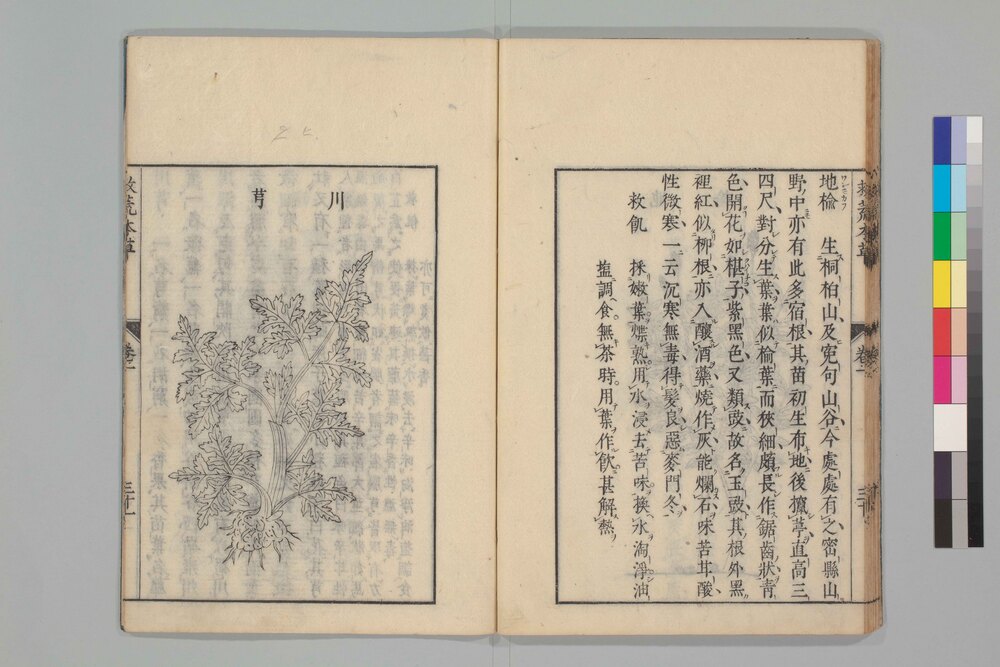 地楡　生桐柏山及寃句山谷今處處有之密縣山
野中亦有此多宿根其苗初生布地後攛葶直高三
四尺對分生葉葉似榆葉而狹細頗長作鋸齒狀青
色開花如椹子紫黑色又類豉故名玉豉其根外黑
裡紅似柳根亦入釀酒藥燒作灰能爛石味苦甘酸
性微寒一云沉寒無毒得髮良惡麥門冬
救飢　採嫩葉煠熟用水浸去苦味換水淘淨油
鹽調食無茶時用葉作飲甚解熱
救荒本草
卷二
三十
川
芎
救荒本草
卷二
三十一